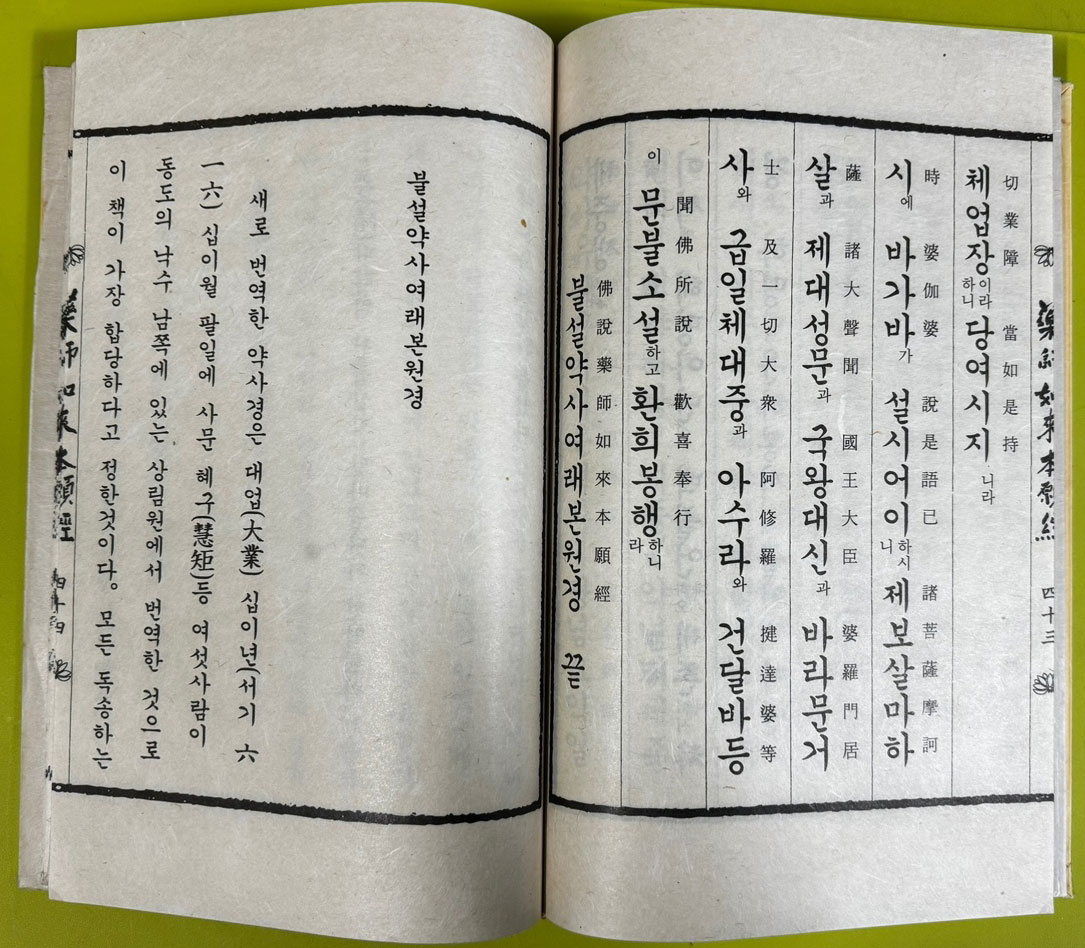 切業障 當如是持
체업장이라하니 당여시지니라
時 婆伽婆 說是語已 諸菩薩摩訶
시에 바가바가 설시어이하시니 제보살마하
薩 諸大聲聞 國王大臣 婆羅門居
살과 제대성문과 국왕대신과 바라문거
士 及一切大衆 阿修羅 揵達婆等
사와 급일체대중과 아수라와 건달바등
이
聞佛所說 歡喜奉行
문불소설하고 환희봉행하니라
佛說藥師如來本願經
불설약사여래본원경 끝
四十三
불설약사여래본원경
새로 번역한 약사경은 대업(大業) 십이년(서기 六
一六) 십이월 팔일에 사문 혜구(慧矩)등 여섯사람이
동도의 낙수 남쪽에 있는 상림원에서 번역한 것으로
이 책이 가장 합당하다고 정한것이다。 모든 독송하는
藥師如來本願經